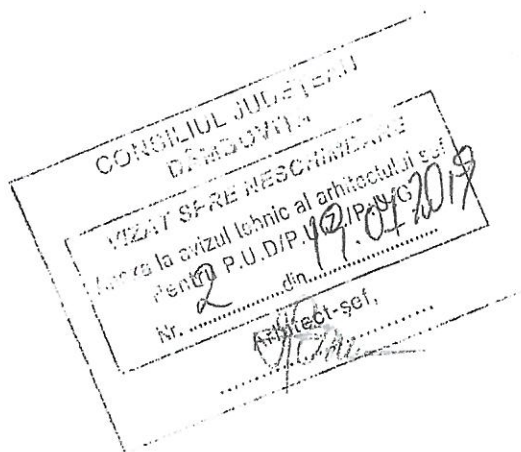 CONSILIUL JUDEȚEAN
DÂMBOVIȚA
VIZAT SPRE NESCHIMBARE
Anexa la avizul tehnic al arhitectului șef
Pentru P.U.D/P.U.Z/P.U.G
Nr. 2 din
Arhitect-șef,